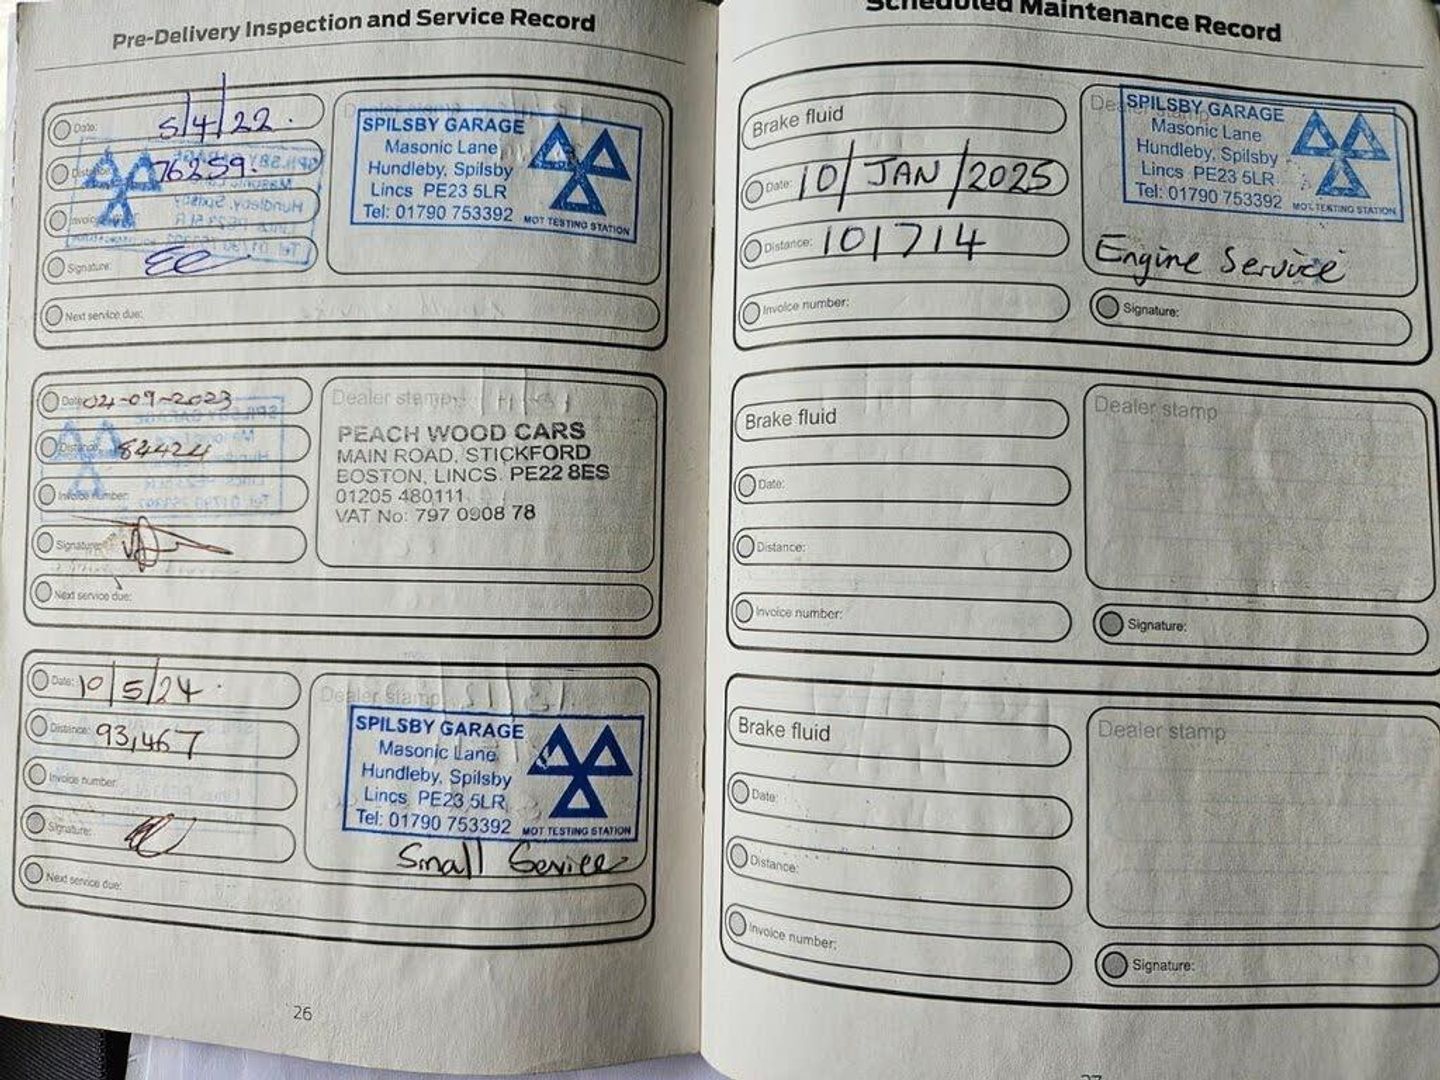 Pre-Delivery Inspection and Service Record
Date: 5/4/22.
Distance: 76259.
Signature:
Next service due:
SPILSBY GARAGE
Masonic Lane
Hundleby, Spilsby
Lincs PE23 5LR
Tel: 01790 753392
MOT TESTING STATION
Date: 04-09-2023
Distance: 84424
Invoice number:
Signature:
Next service due:
Dealer stamp
PEACH WOOD CARS
MAIN ROAD, STICKFORD
BOSTON, LINCS. PE22 8ES
01205 480111
VAT No: 797 0908 78
Date: 10/5/24.
Distance: 93,467
Invoice number:
Signature:
Next service due:
Dealer stamp
SPILSBY GARAGE
Masonic Lane
Hundleby, Spilsby
Lincs PE23 5LR
Tel: 01790 753392
MOT TESTING STATION
Small Service
26
Scheduled Maintenance Record
Brake fluid
Date: 10/JAN/2025
Distance: 101714
Invoice number:
SPILSBY GARAGE
Masonic Lane
Hundleby, Spilsby
Lincs PE23 5LR
Tel: 01790 753392
MOT TESTING STATION
Engine Service
Signature:
Brake fluid
Date:
Distance:
Invoice number:
Dealer stamp
Signature:
Brake fluid
Date:
Distance:
Invoice number:
Dealer stamp
Signature: